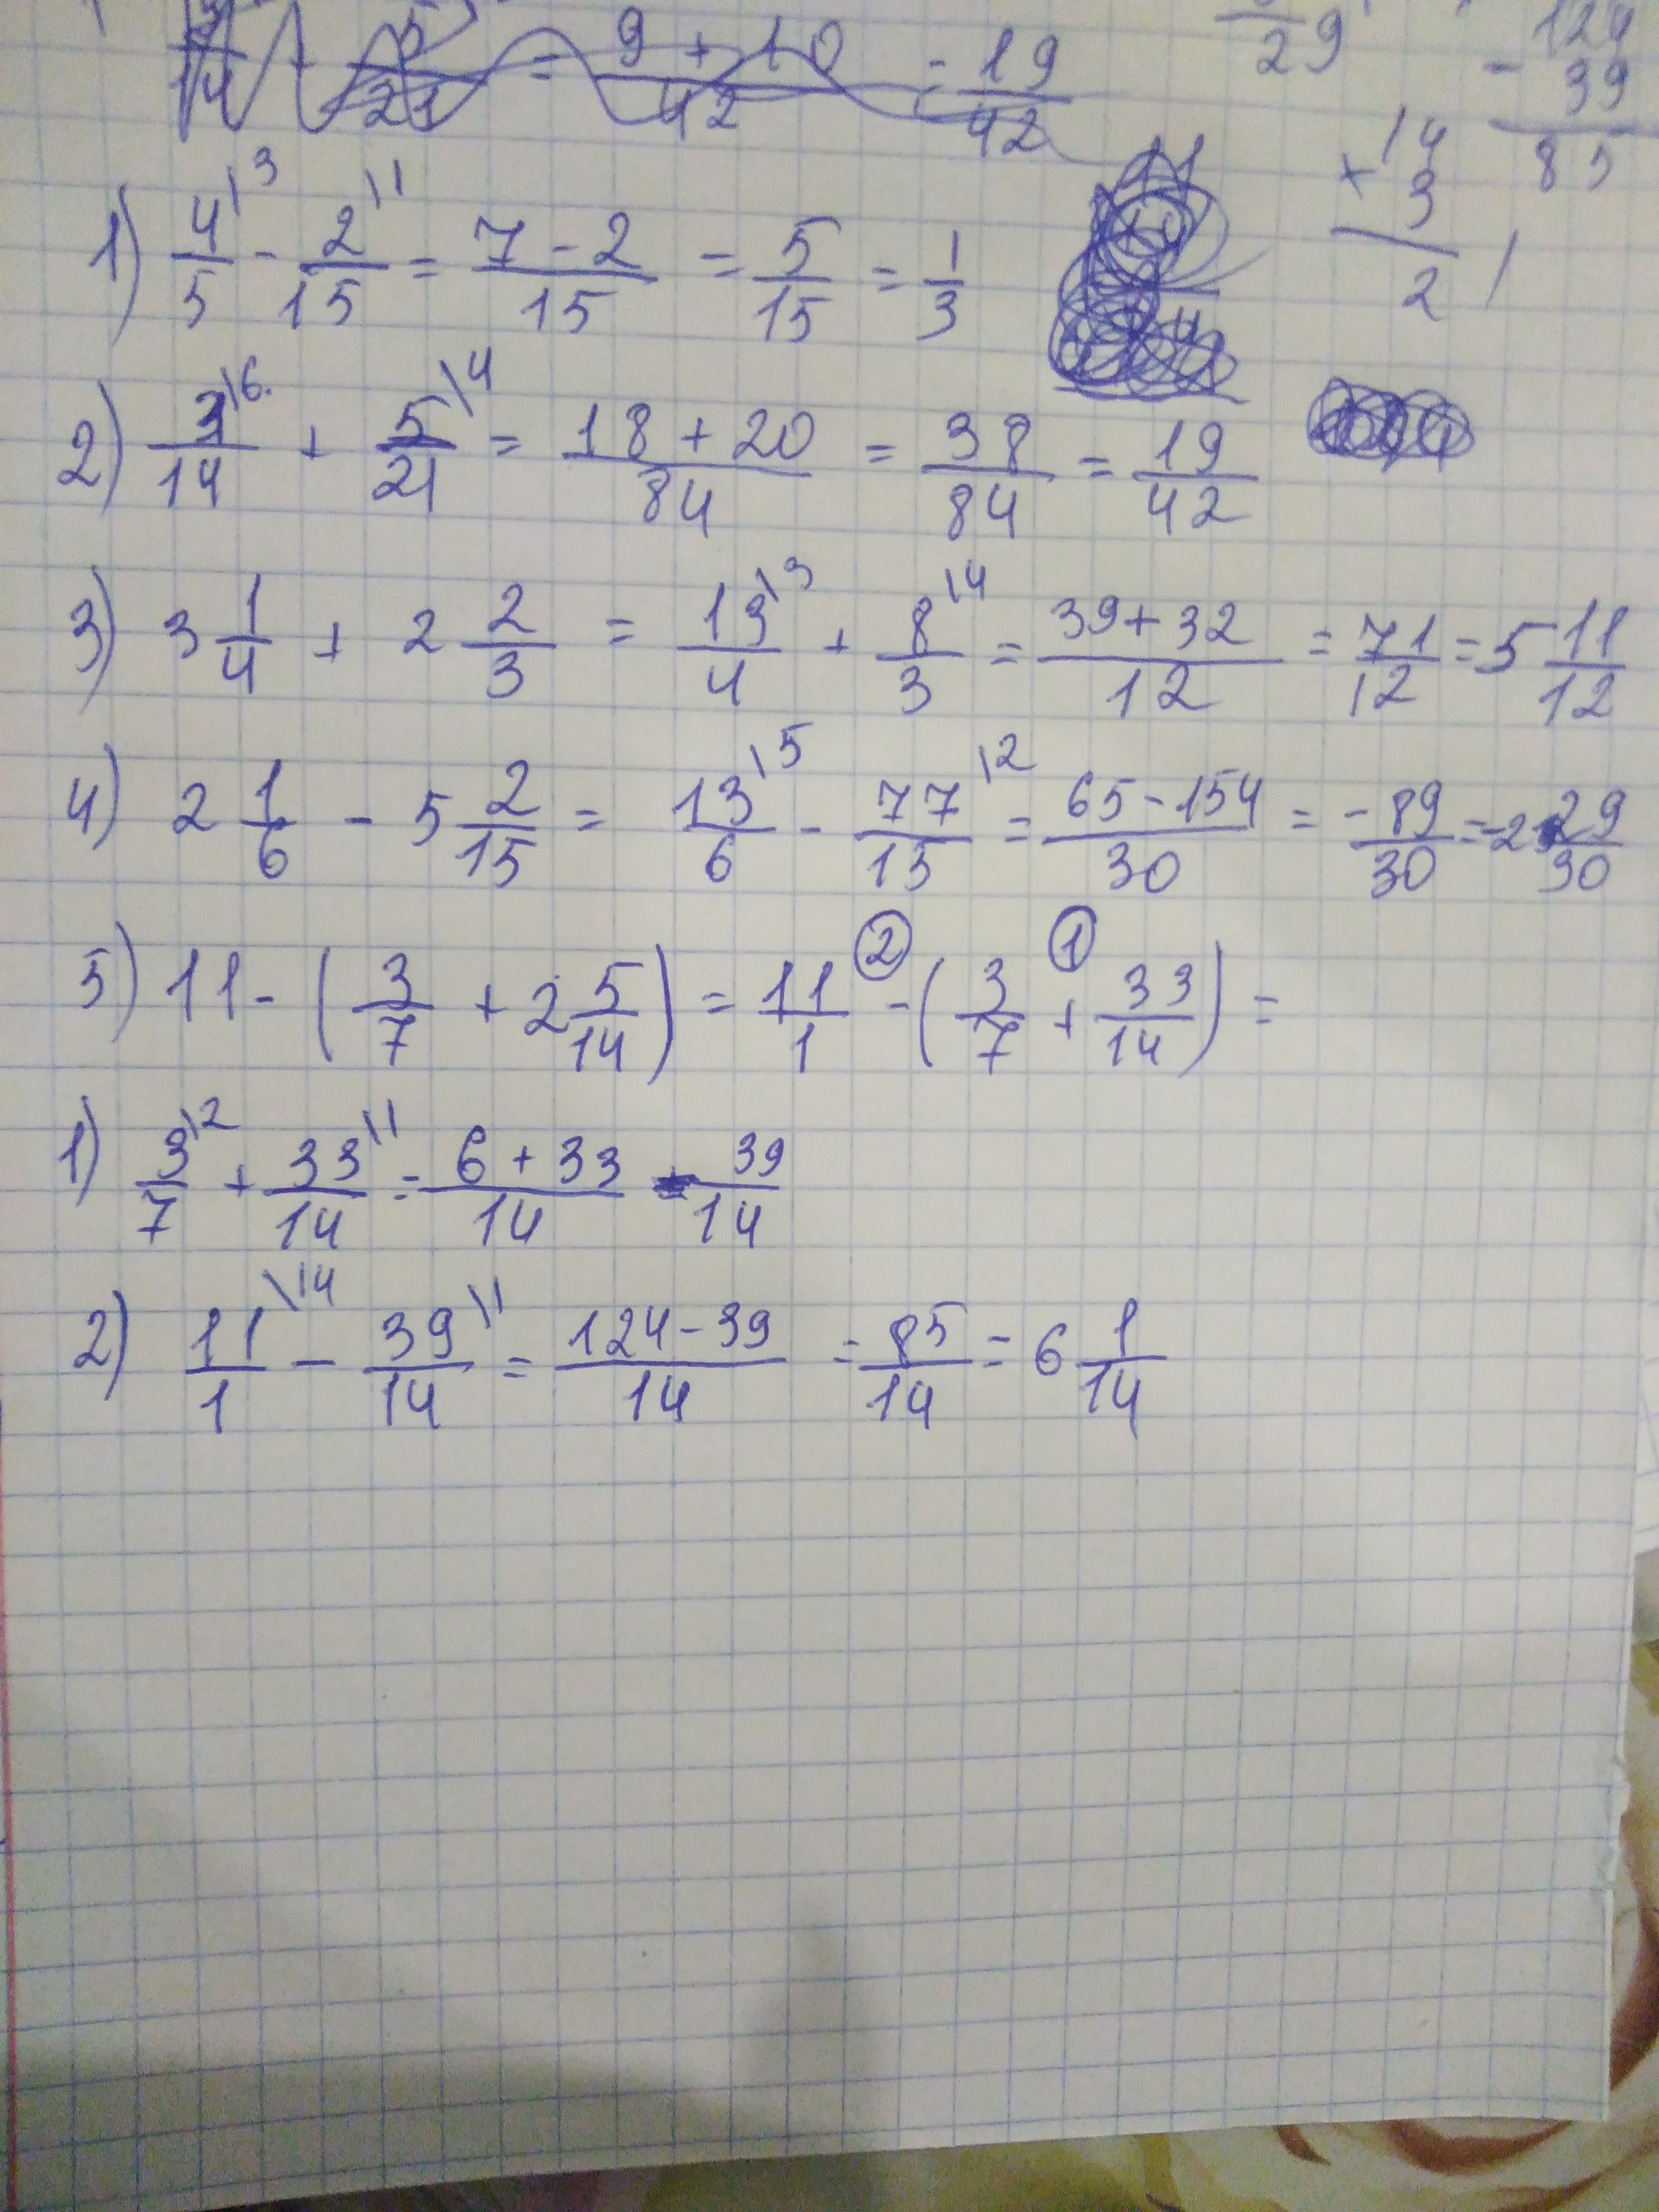 3/14 + 5/21 = (9 + 10)/42 = 19/42
29
- 124
39
85
× 14
3
2
1) 4/5 \3 - 2/15 \1 = (7 - 2)/15 = 5/15 = 1/3
2) 3/14 \6 + 5/21 \4 = (18 + 20)/84 = 38/84 = 19/42
3) 3 1/4 + 2 2/3 = 13/4 \3 + 8/3 \4 = (39 + 32)/12 = 71/12 = 5 11/12
4) 2 1/6 - 5 2/15 = 13/6 \5 - 77/15 \2 = (65 - 154)/30 = -89/30 = -2 29/30
5) 11 - (3/7 + 2 5/14) = 11/1 ② - (3/7 ① + 33/14) =
1) 3/7 \2 + 33/14 \1 = (6 + 33)/14 = 39/14
2) 11/1 \14 - 39/14 \1 = (124 - 39)/14 = 85/14 = 6 1/14